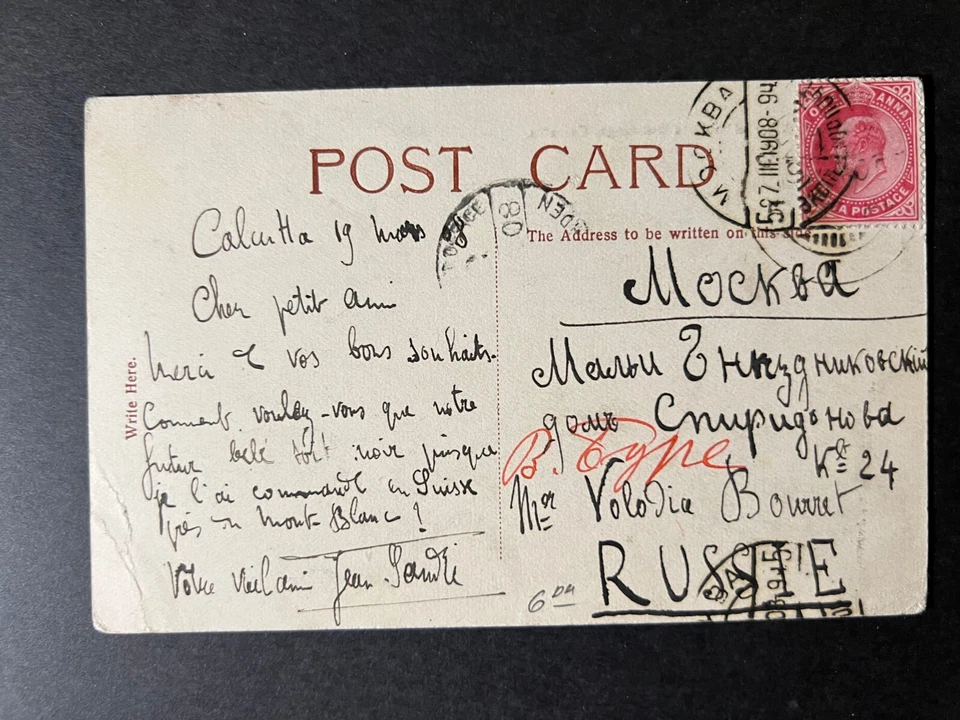 POST CARD
The Address to be written on this side
Write Here.
Calcutta 19 Mars
Cher petit ami
Merci de vos bons souhaits.
Comment voulez-vous que notre
futur bébé soit noir puisque
je l'ai commandé en Suisse
près du Mont-Blanc!
Votre vieil ami Jean
Москва
Малый Гнездниковскій
домъ Спиридонова
Кв 24
В. Буре
Mr Volodia Bourret
RUSSIE
6 DA
МОСКВА
1908
ANNA
A POSTAGE
80